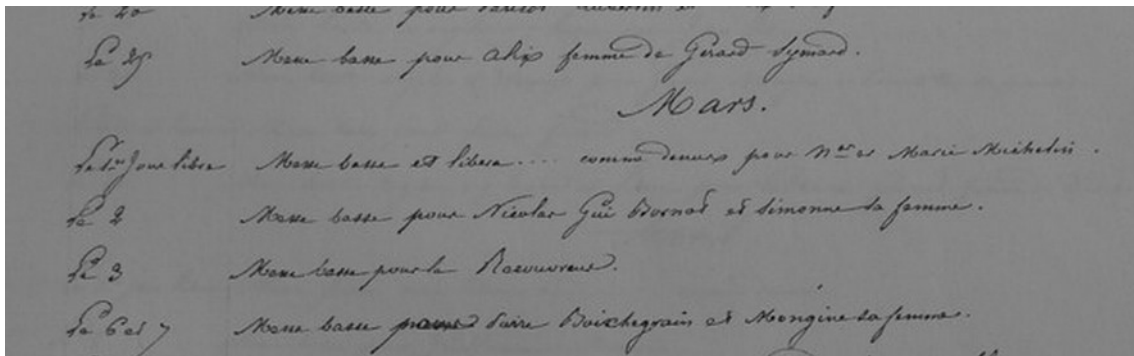 Le 20 Messe basse pour
Le 25 Messe basse pour alix femme de Gerard Symard.
Mars.
Le 1er Jour libre Messe basse et libera .... comme dessus pour Mer et Marie Michelin.
Le 2 Messe basse pour Nicolas Gui Bornot et Simonne sa femme.
Le 3 Messe basse pour le Recouvreur.
Le 6 et 7 Messe basse pour Boichegrain et Mongine sa femme.